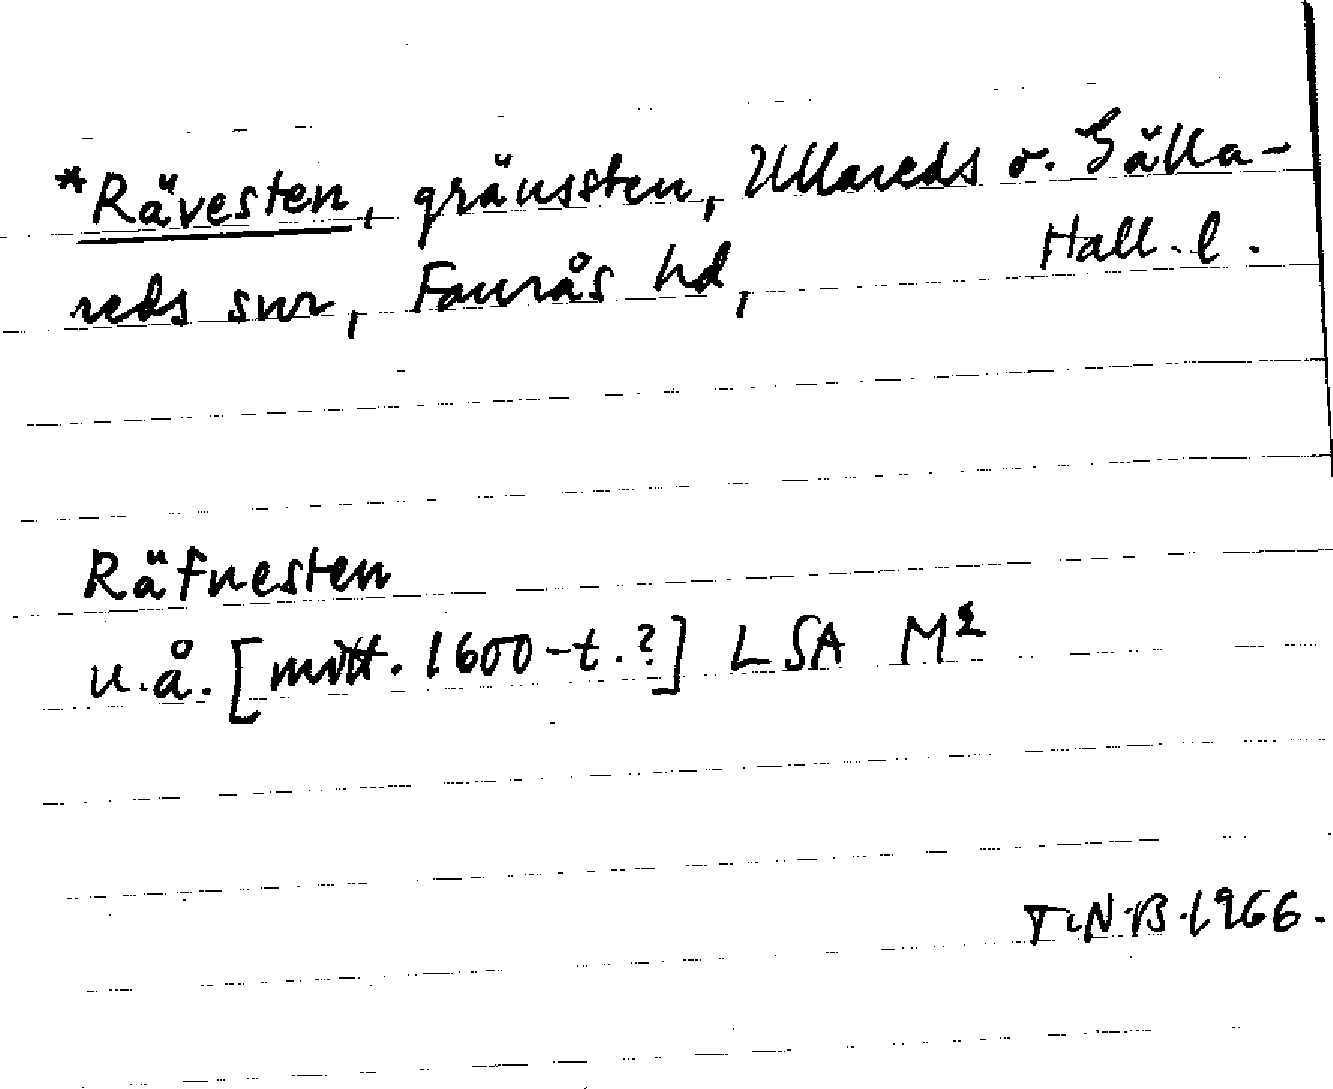 *Rävesten, gränssten, Ullareds o. Gälla-
reds snr, Faurås hd, Hall. l.
Räfnesten
u.å. [mitt. 1600-t.?] LSA M²
T.N.B. 1966.